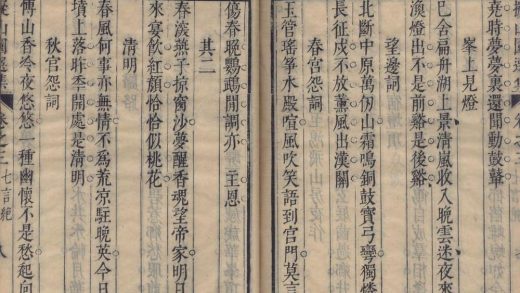 堯時夢夢裏還聞動鼓鼙
峯上見燈
已含扁舟湖上景清風收入晚雲迷夜來
漁燈出不是前谿是後谿
望邊詞
北斷中原萬仞山霜鳴銅鼓寶弓彎獨憐
長征戍不放薰風出漢關
春宮怨詞
玉管瑤箏水殿喧風吹笑語到宮門莫言
傷春賜鸚鵡閒調亦一主恩
其二
春淺燕子掠窗沙夢醒香魂望帝家明日
來宴飲紅顏恰恰似桃花
清明
春風何事亦無情不爲荒涼駐晚英今日
墳上落昨季開處是清明
秋宮怨詞
傅山香冷夜悠悠一種幽懷不是愁起向
卷之三 七言絕 八